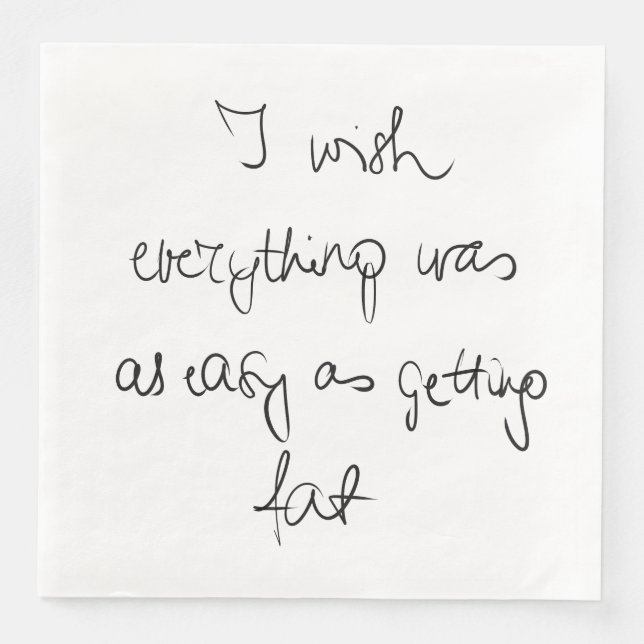 I wish
everything was
as easy as getting
fat